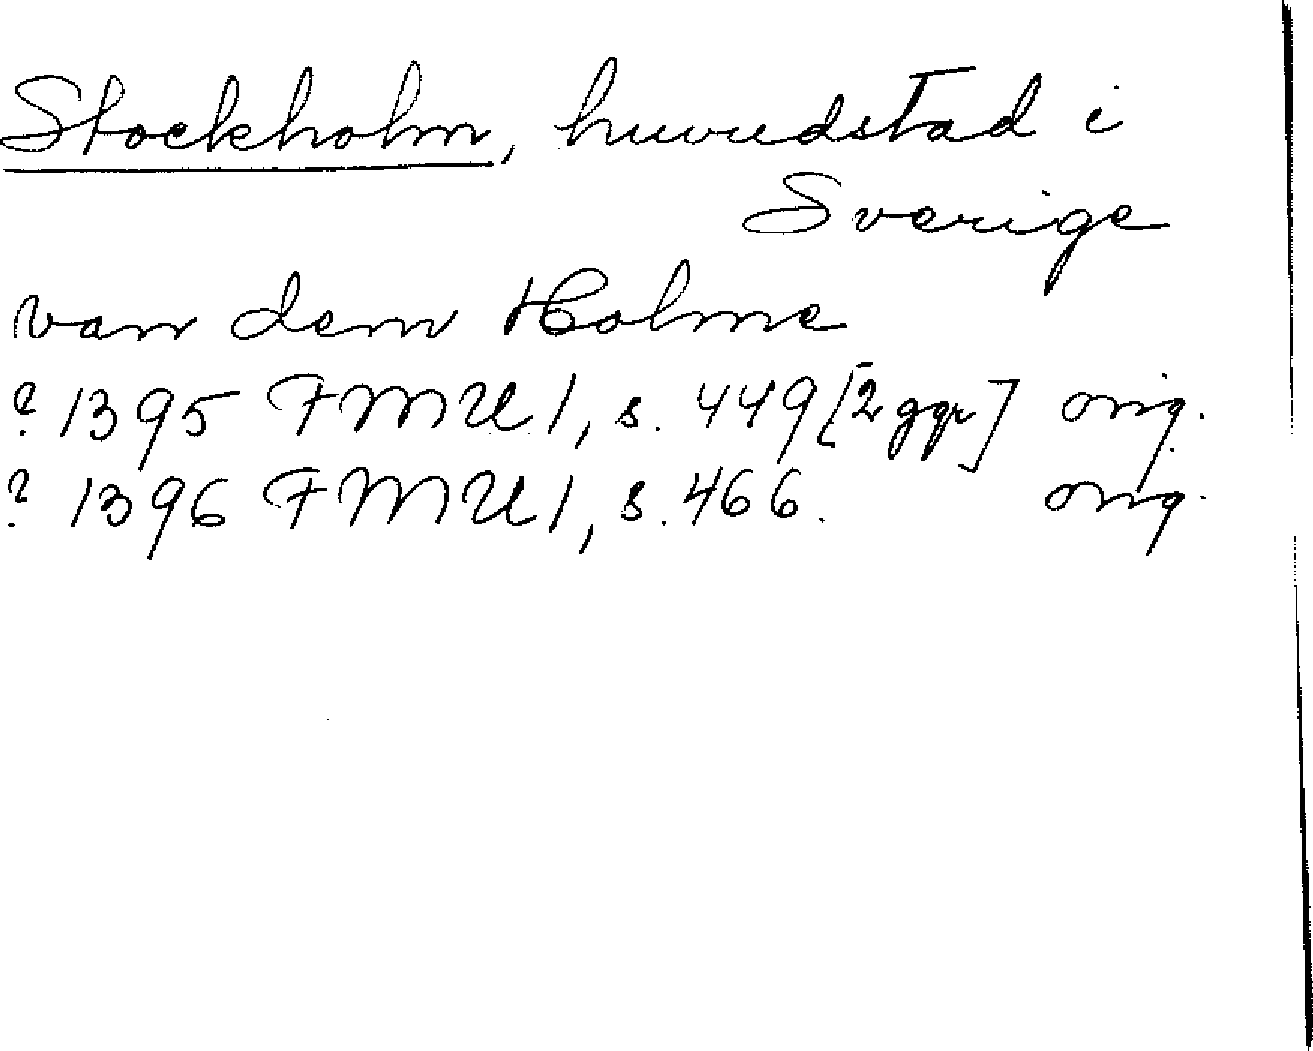 Stockholm, huvudstad i
Sverige
van dem Holme
? 1395 FMU 1, s. 449 [2 ggr] orig.
? 1396 FMU 1, s. 466. orig.